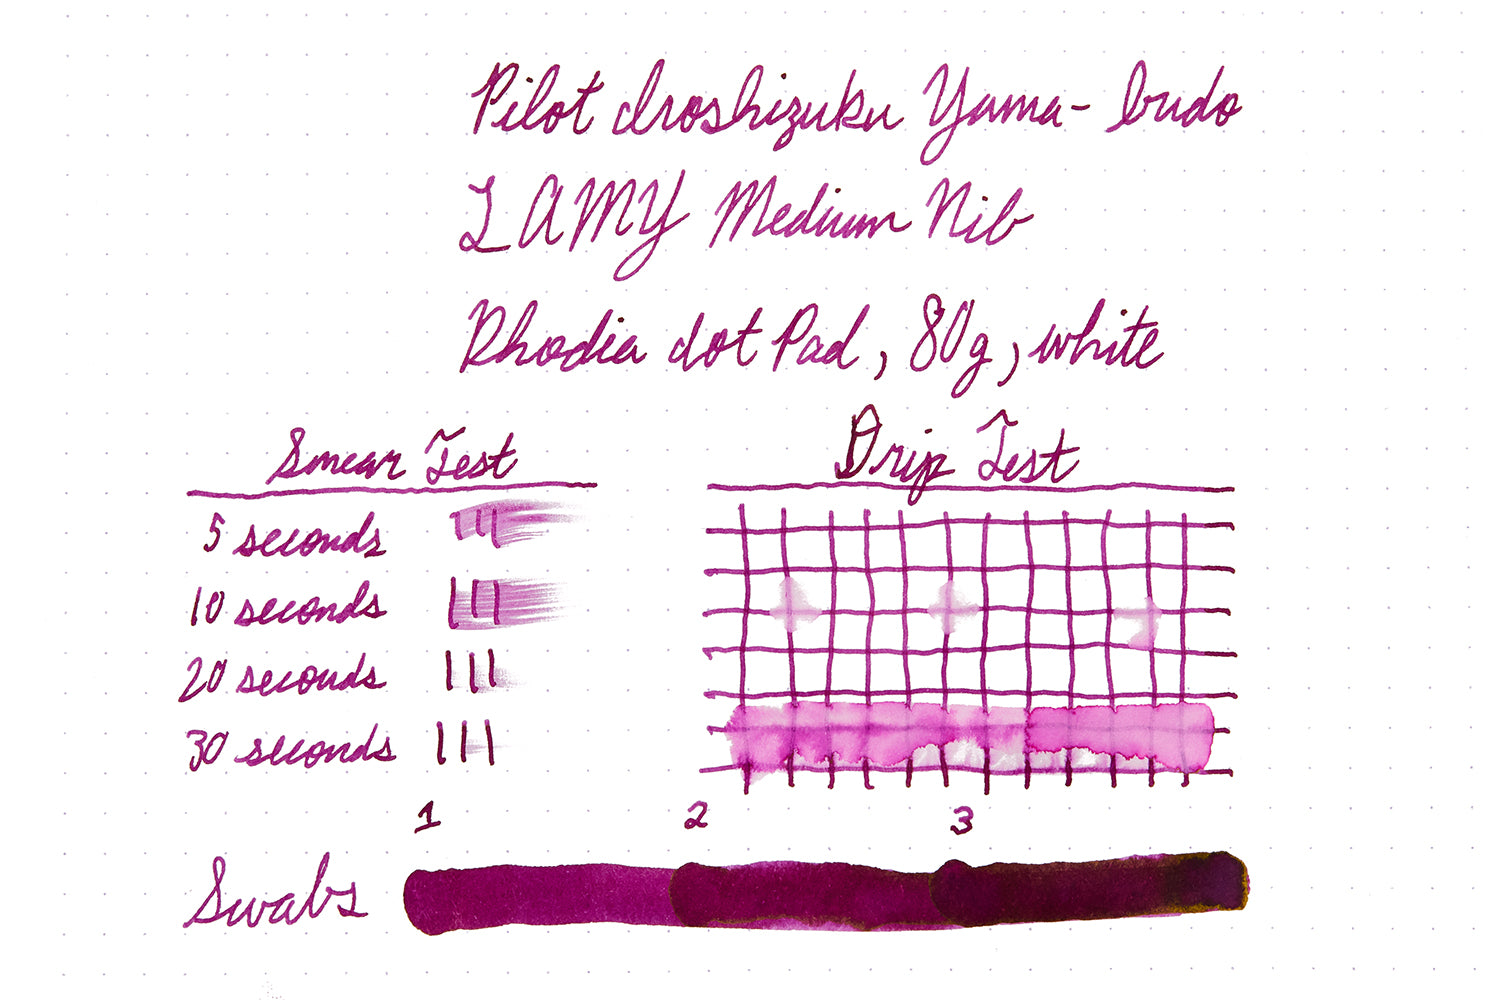 Pilot Iroshizuku Yama-budo
LAMY Medium Nib
Rhodia dot Pad, 80g, white
Smear Test
5 seconds
10 seconds
20 seconds
30 seconds
Drip Test
1 2 3
Swabs